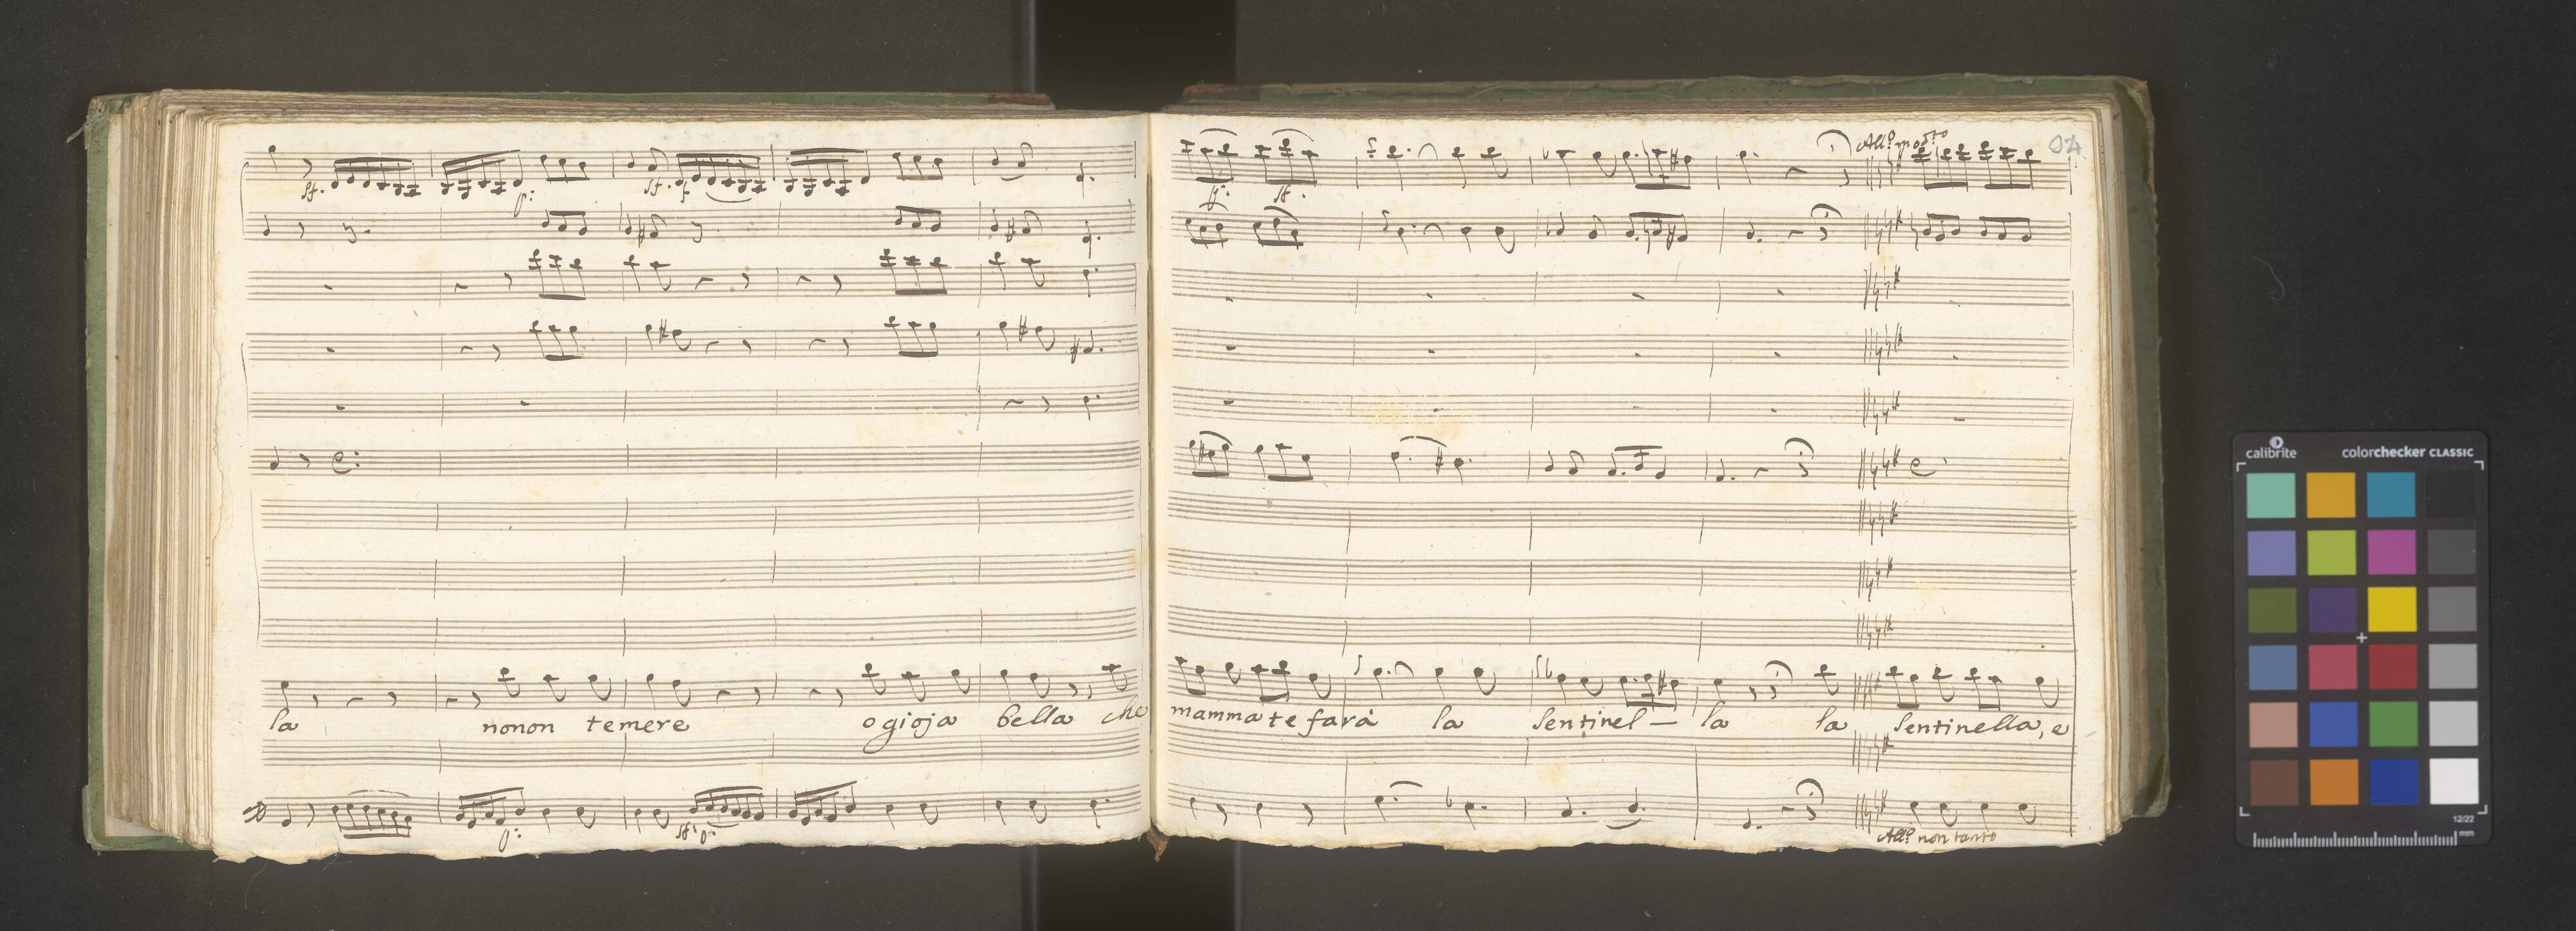 sf. p: sf. p
la nonon temere o gioja bella che
p: sf. p:
Allo. modto 94
p: sf.
mamma te farà la sentinel — la la sentinella, e
Allo. non tanto
calibrite colorchecker CLASSIC
12/22
mm